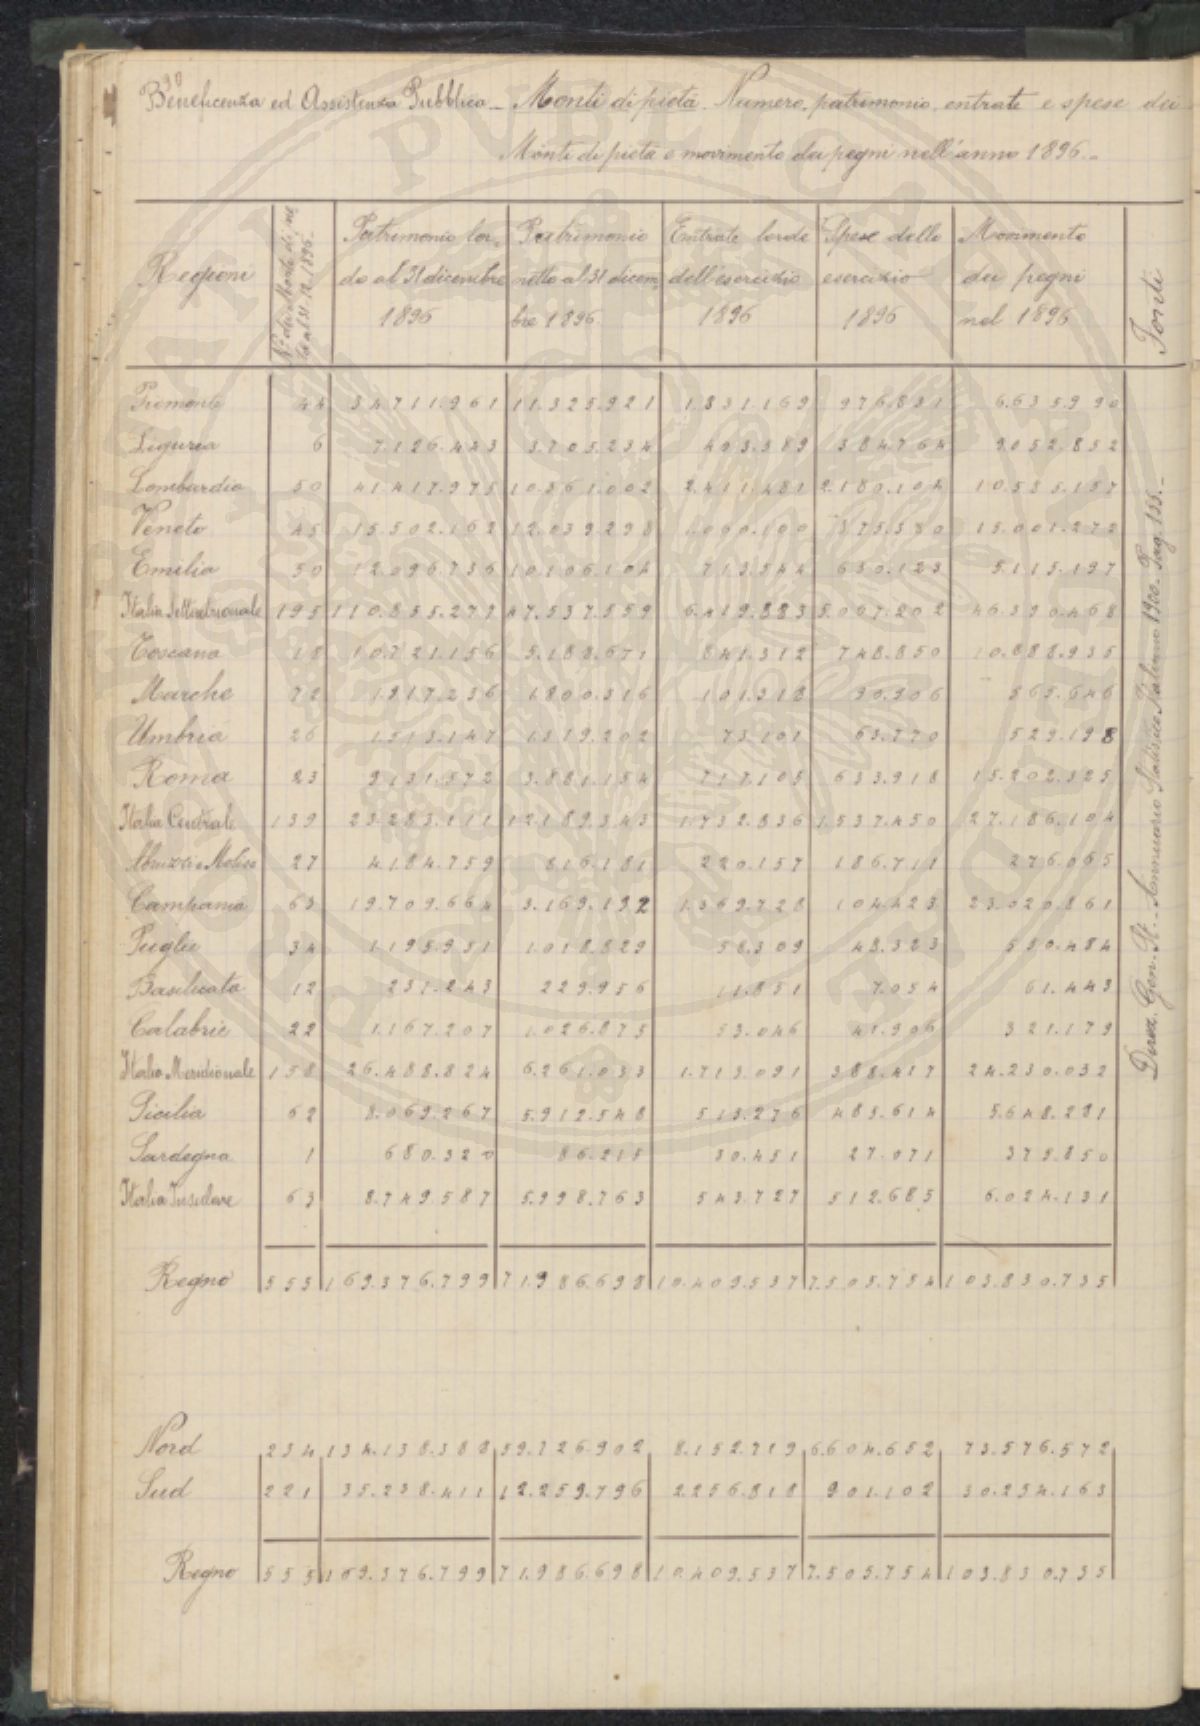 90
Beneficenza ed Assistenza Pubblica - Monti di pietà. Numero, patrimonio, entrate e spese dei
Monti di pietà e movimento dei pegni nell'anno 1896.-
Regioni | Patrimonio lordo al 31 dicembre 1896 | Patrimonio netto al 31 dicembre 1896 | Entrate lorde dell'esercizio 1896 | Spese dello esercizio 1896 | Movimento dei pegni nel 1896 | Fonti
Piemonte 44 34711.961 11.325.921 1.831.169 976.831 6.635.990
Liguria 6 7.126.443 3.705.234 403.389 384.764 9.052.852
Lombardia 50 41.417.975 10.361.002 2.411.481 2.180.104 10.585.157
Veneto 45 15.502.162 12.039.298 1.060.100 875.380 15.001.272
Emilia 50 12.096.736 10.106.104 713.544 650.123 5.115.197
Italia Settentrionale 195 110.855.277 47.537.559 6.419.883 5.067.202 46.390.468
Toscana 18 10.721.156 5.188.671 841.312 748.850 10.888.935
Marche 72 1.917.236 1.800.316 101.318 90.906 565.646
Umbria 26 1.513.147 1.319.202 73.101 63.770 529.198
Roma 23 9.131.572 3.881.154 717.105 633.918 15.202.325
Italia Centrale 139 23.283.111 12.189.343 1.732.836 1.537.450 27.186.104
Abruzzi e Molise 27 4.184.759 816.181 220.157 186.711 276.065
Campania 63 19.709.664 3.169.192 1.369.728 104.423 23.020.861
Puglie 34 1.195.951 1.018.829 58.309 48.323 550.484
Basilicata 12 231.243 229.956 11.851 7.054 61.443
Calabrie 22 1.167.207 1.026.875 53.046 41.906 321.179
Italia Meridionale 158 26.488.824 6.261.033 1.713.091 388.417 24.230.032
Sicilia 62 8.069.267 5.912.548 513.276 485.614 5.648.281
Sardegna 1 680.320 86.215 30.451 27.071 379.850
Italia Insulare 63 8.749.587 5.998.763 543.727 512.685 6.024.131
Regno 555 169.376.799 71.986.698 10.409.537 7.505.754 103.830.735
Nord 234 134.138.388 59.726.902 8.152.719 6.604.652 73.576.572
Sud 221 35.238.411 12.259.796 2.256.818 901.102 30.254.163
Regno 555 169.376.799 71.986.698 10.409.537 7.505.754 103.830.735
Direz. Gen. St. - Annuario Statistico Italiano 1900. Pag. 155.-